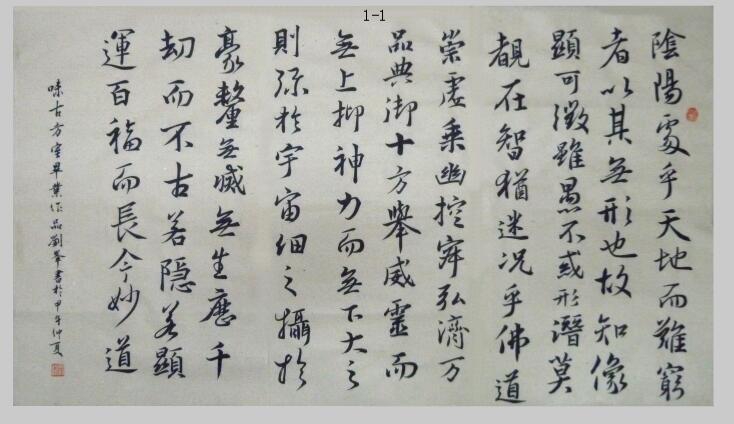 1-1
陰陽處乎天地而難窮
者以其無形也故知像
顯可徵雖愚不惑形潛莫
覩在智猶迷況乎佛道
崇虛乘幽控寂弘濟万
品典御十方舉威靈而
無上抑神力而無下大之
則弥於宇宙細之攝於
豪釐無滅無生歷千
劫而不古若隱若顯
運百福而長今妙道
味古方室畢業作品劉峯書於甲午仲夏